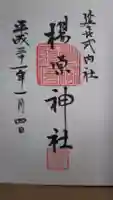 延喜式内社
楊原神社
平成二十一年一月四日